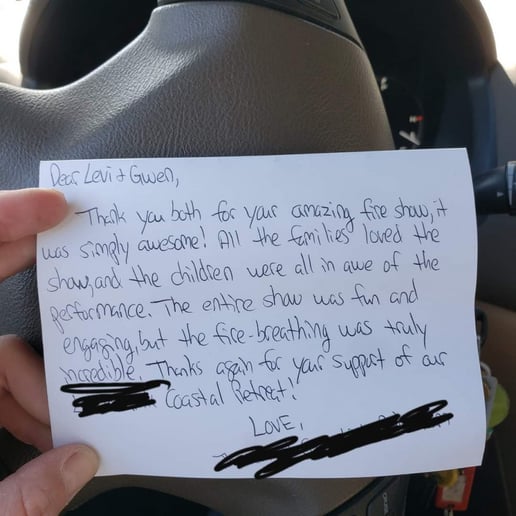 Dear Levi + Gwen,
Thank you both for your amazing fire show, it
was simply awesome! All the families loved the
show, and the children were all in awe of the
performance. The entire show was fun and
engaging, but the fire-breathing was truly
incredible. Thanks again for your support of our
Coastal Retreat!
LOVE,